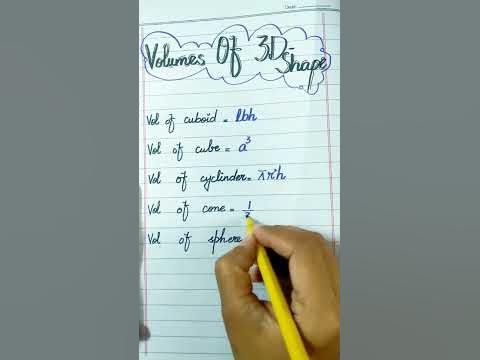 Volumes Of 3D-
Shape
Vol of cuboid = lbh
Vol of cube = a³
Vol of cyclinder = πr²h
Vol of cone = 1/3
Vol of sphere